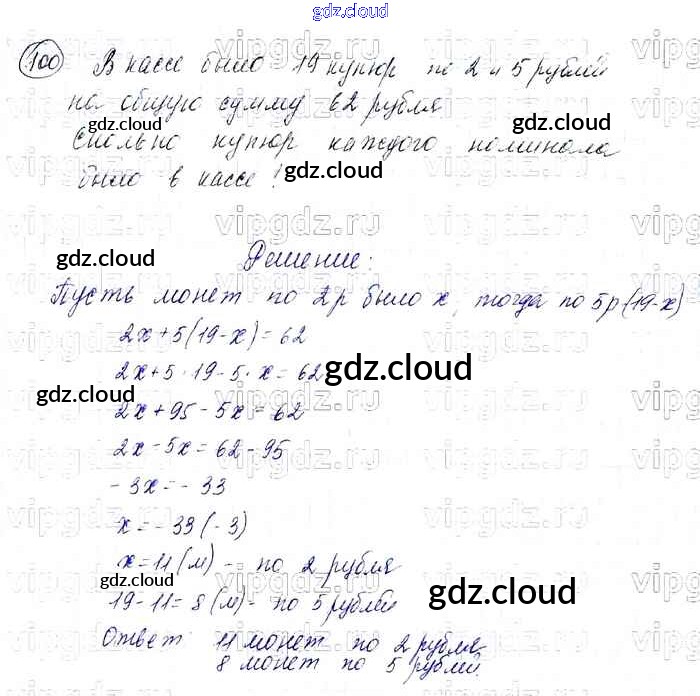 gdz.cloud
100 В кассе было 19 купюр по 2 и 5 рублей
на общую сумму 62 рубля
gdz.cloud
gdz.cloud
сколько купюр каждого номинала
было в кассе?
gdz.cloud
gdz.cloud
Решение:
Пусть монет по 2р было x, тогда по 5р (19-x)
2x+5(19-x)=62
2x+5·19-5·x=62
gdz.cloud
gdz.cloud
2x+95-5x=62
2x-5x=62-95
-3x=-33
x=-33(-3)
x=11(м) - по 2 рубля
gdz.cloud
gdz.cloud
19-11=8(м)- по 5 рублей
Ответ 11 монет по 2 рубля
8 монет по 5 рублей.
vipgdz.ru